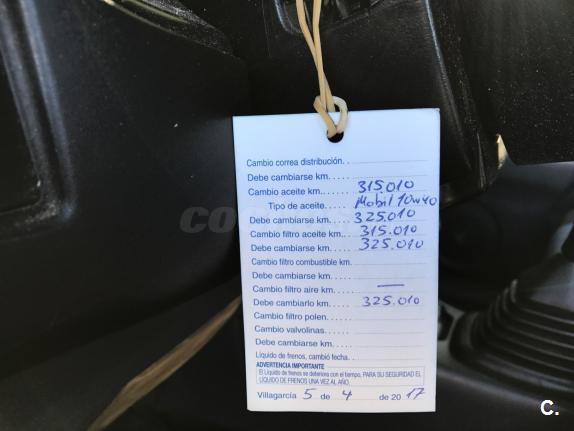 Cambio correa distribución. .
Debe cambiarse km. . . . . .
Cambio aceite km. . . . . . 315.010
Tipo de aceite. . . . . Mobil 10w40
Debe cambiarse km. . . . . 325.010
Cambio filtro aceite km. . . 315.010
Debe cambiarse km. . . . . 325.010
Cambio filtro combustible km.
Debe cambiarse km. . . . . .
Cambio filtro aire km. . . . . —
Debe cambiarlo km. . . . . . 325.010
Cambio filtro polen. . . . . .
Cambio valvolinas. . . . . .
Debe cambiarse km. . . . . .
Líquido de frenos, cambió fecha. .
ADVERTENCIA IMPORTANTE
El Líquido de frenos se deteriora con el tiempo, PARA SU SEGURIDAD EL
LÍQUIDO DE FRENOS UNA VEZ AL AÑO.
Villagarcía 5 de 4 de 2017
C.